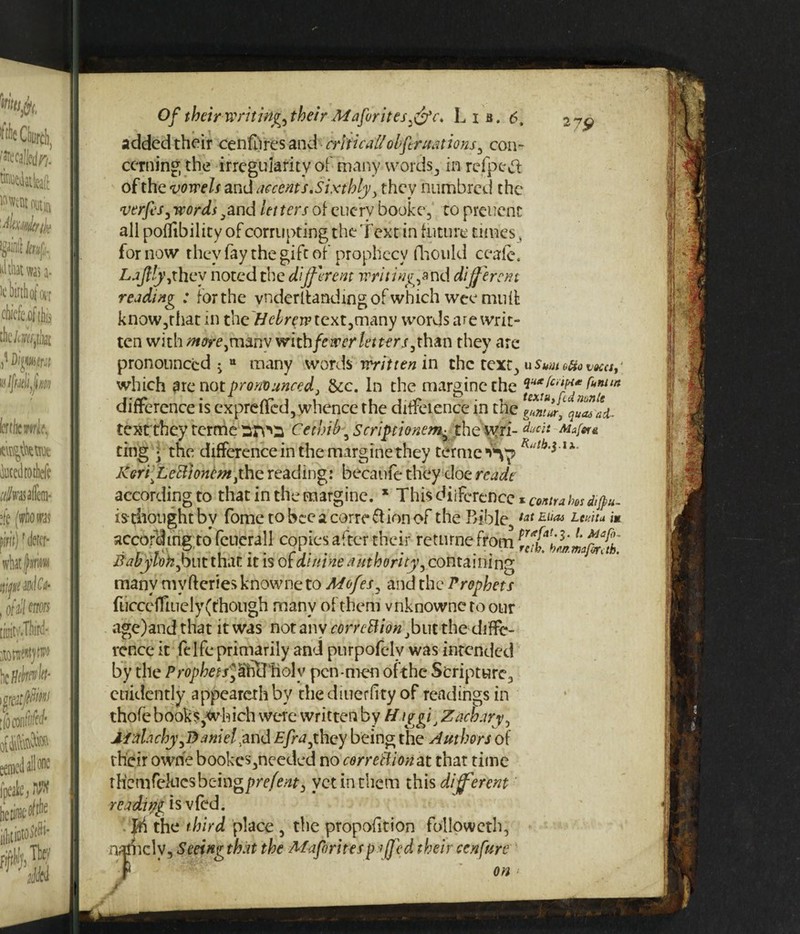 Of their writing, their Masorites, &c. LIB. 6. 279
added their censures and criticall observations, con-
cerning the irregularity of many words, in respect
of the vowels and accents. Sixthly, they numbred the
verses, words, and letters of euery booke, to preuent
all possibility of corrupting the Text in future times,
for now they say the gift of prophecy should cease.
Lastly, they noted the different writing, and different
reading : for the vnderstanding of which wee must
know, that in the Hebrew text, many words are writ-
ten with more, many with fewer letters, than they are
pronounced ; u many words written in the text,
which are not pronounced, &c. In the margine the
difference is expressed, whence the difference in the
text they terme כתיב Cethib, Scriptionem, the wri-
ting ; the difference in the margine they terme קרי
Keri, Lectionem, the reading: because they doe reade
according to that in the margine. x This difference
is thought by some to bee a correction of the Bible,
according to seuerall copies after their returne from
Babylon, but that it is of diuine authority, containing
many mysteries knowne to Moses, and the Prophets
successiuely (though many of them vnknowne to our
age) and that it was not any correction, but the diffe-
rence it selfe primarily and purposely was intended
by the Prophets, and holy pen-men of the Scripture,
euidently appeareth by the diuersity of readings in
those books, which were written by Haggi, Zachary,
Malachy, Daniel, and Esra, they being the Authors of
their owne bookes, needed no correction at that time
themselues being present, yet in them this different
reading is vsed.
In the third place, the proposition followeth,
namely, Seeing that the Masorites passed their censure
on
u Sunt octo voces,
quæ scriptæ sunt in
textu, sed non le
guntur, quas ad-
ducit Masora
Ruth. 3. 12.
x contra hos dispu-
tat Elias Leuita in
præfat. 3. l. Maso-
reth. hammasoreth.
the Church,
Alexander the
that was a-
birth of our
the truth
Third-
great
They
added